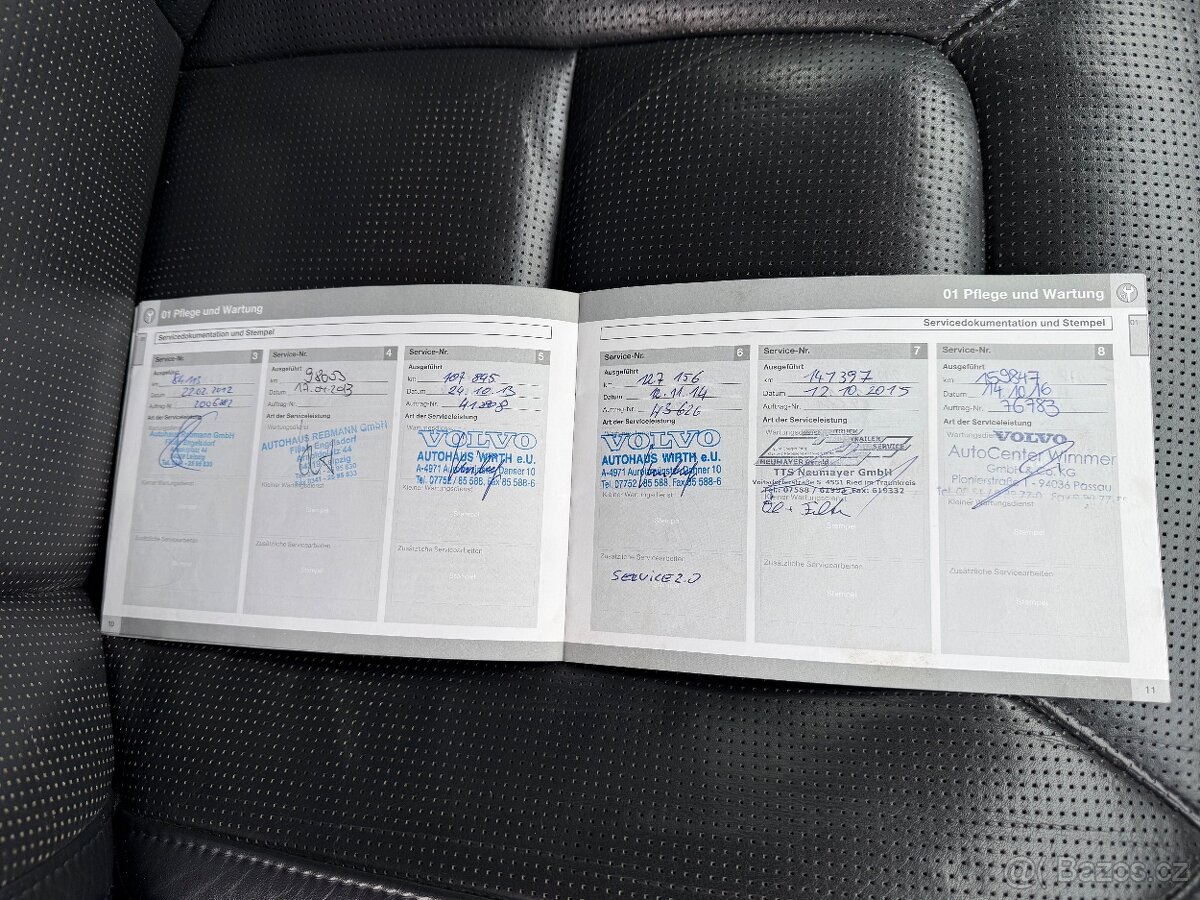 01 Pflege und Wartung
Servicedokumentation und Stempel
Service-Nr. 3
Ausgeführt
km 84113
Datum 22.02.2012
Auftrag-Nr.
Art der Serviceleistung
Autohaus Rebmann GmbH
04288 Leipzig
Zusätzliche Servicearbeiten
Service-Nr. 4
Ausgeführt
km 98053
Datum 17.01.2013
Auftrag-Nr.
Art der Serviceleistung
Wartungsdienst
AUTOHAUS REBMANN GmbH
Filiale Engelsdorf
Kleiner Wartungsdienst
Stempel
Zusätzliche Servicearbeiten
Stempel
Service-Nr. 5
Ausgeführt
km 107 895
Datum 24.10.13
Auftrag-Nr. 41898
Art der Serviceleistung
Wartungsdienst
VOLVO
AUTOHAUS WIRTH e.U.
Tel. 07752 / 85 588, Fax 85 588-6
Kleiner Wartungsdienst
Stempel
Zusätzliche Servicearbeiten
Stempel
10
01 Pflege und Wartung
01
Servicedokumentation und Stempel
Service-Nr. 6
Ausgeführt
km 127 156
Datum 12.11.14
Auftrag-Nr. 43626
Art der Serviceleistung
VOLVO
AUTOHAUS WIRTH e.U.
Tel. 07752 / 85 588, Fax 85 588-6
Kleiner Wartungsdienst
Stempel
Zusätzliche Servicearbeiten
SERVICE 2.0
Service-Nr. 7
Ausgeführt
km 141397
Datum 12.10.2015
Auftrag-Nr.
Art der Serviceleistung
Wartungsdienst
TRAILER
SERVICE
TTS Neumayer GmbH
4551 Ried im Traunkreis
Fax: 619332
Kleiner Wartungsdienst
Öl + Filter
Stempel
Zusätzliche Servicearbeiten
Stempel
Service-Nr. 8
Ausgeführt
km 159847
Datum 14.10.16
Auftrag-Nr. 76983
Art der Serviceleistung
Wartungsdienst
VOLVO
AutoCenter Wimmer
GmbH & Co. KG
Planierstraße 1 - 94036 Passau
Kleiner Wartungsdienst
Stempel
Zusätzliche Servicearbeiten
Stempel
11
Bazos.cz